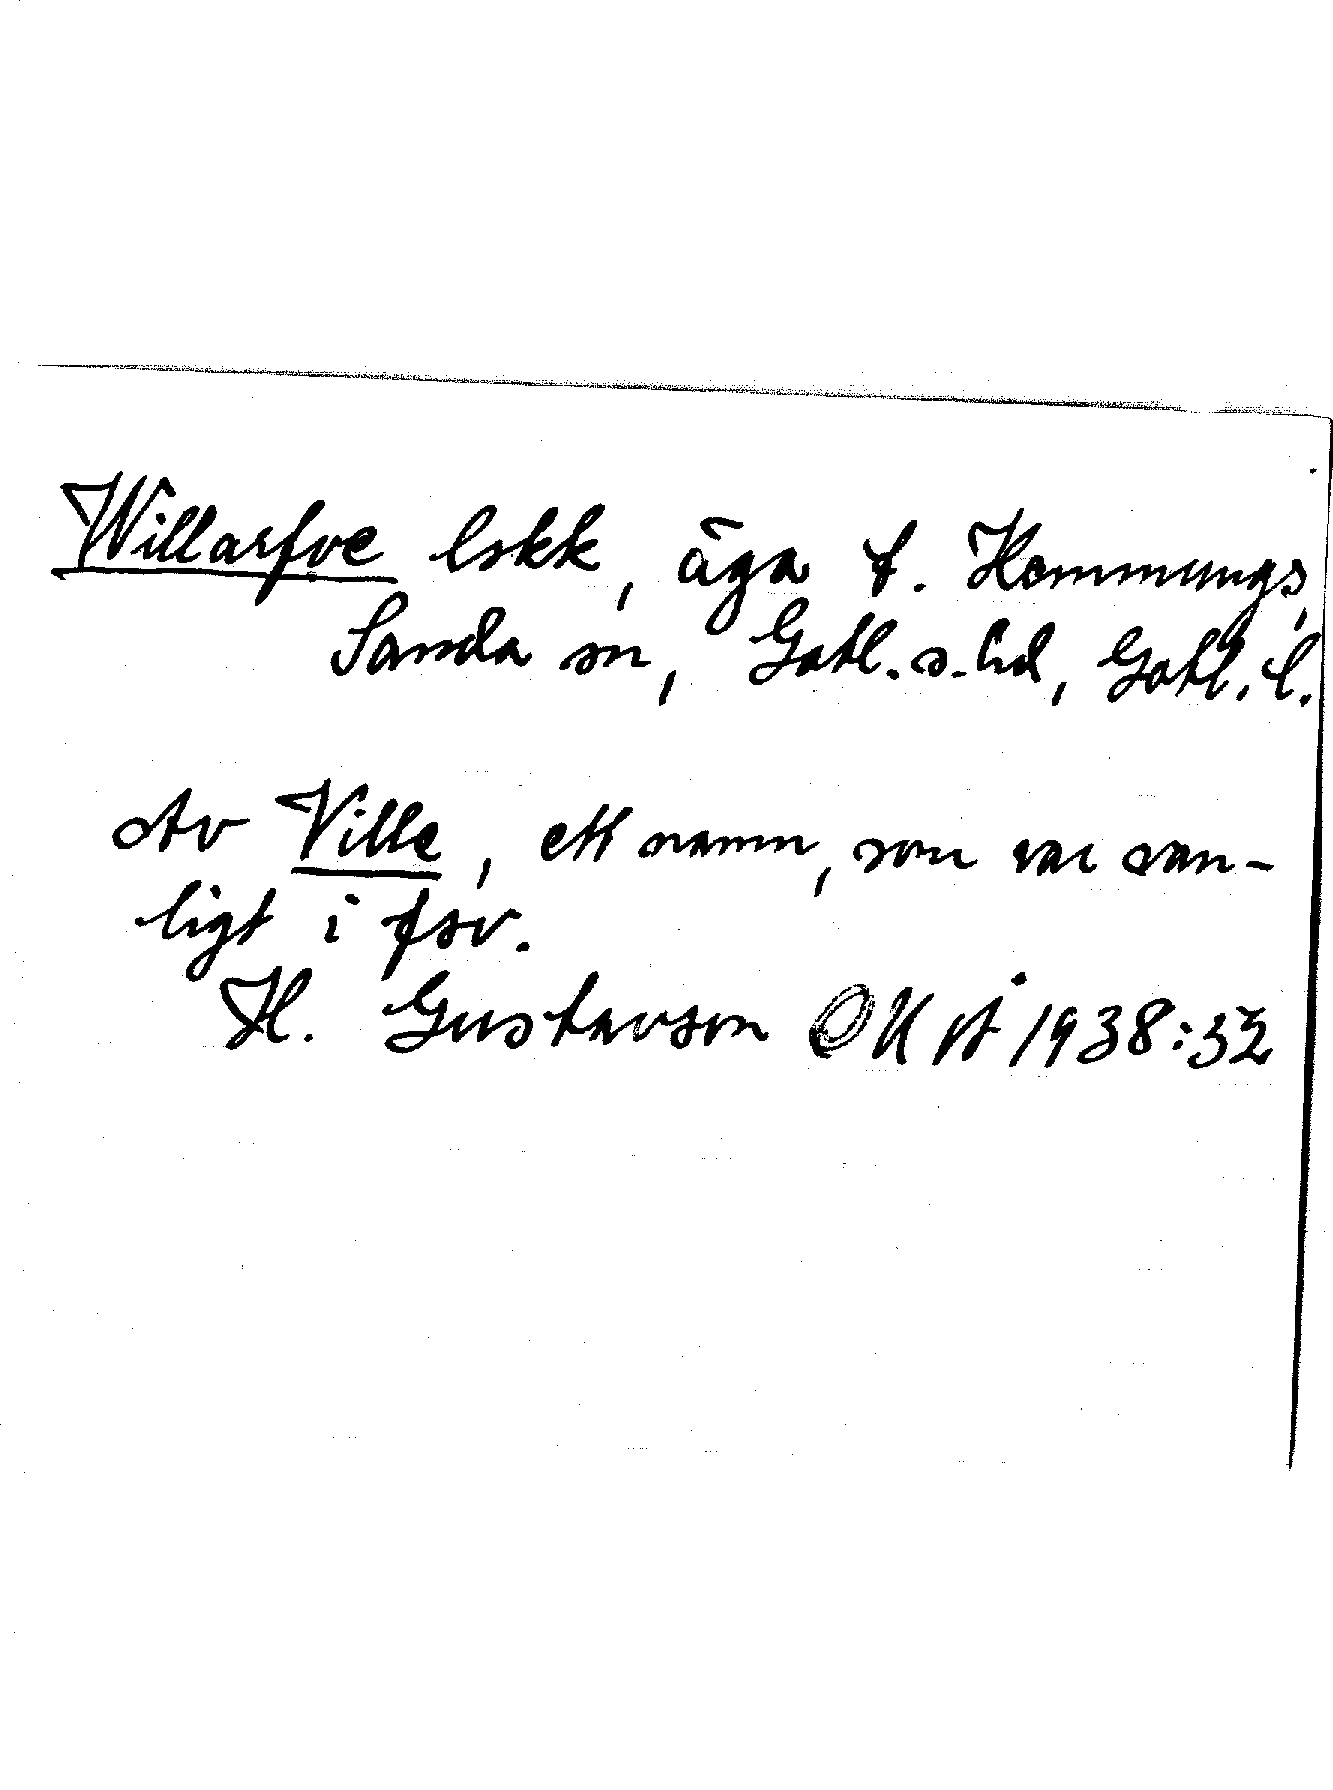 Willarfve lskk, äga t. Hemmungs,
Sanda sn, Gotl. s. hd, Gotl. l.
Av Ville, ett namn, som var van-
ligt i fsv.
H. Gustavson OUÅ 1938:32